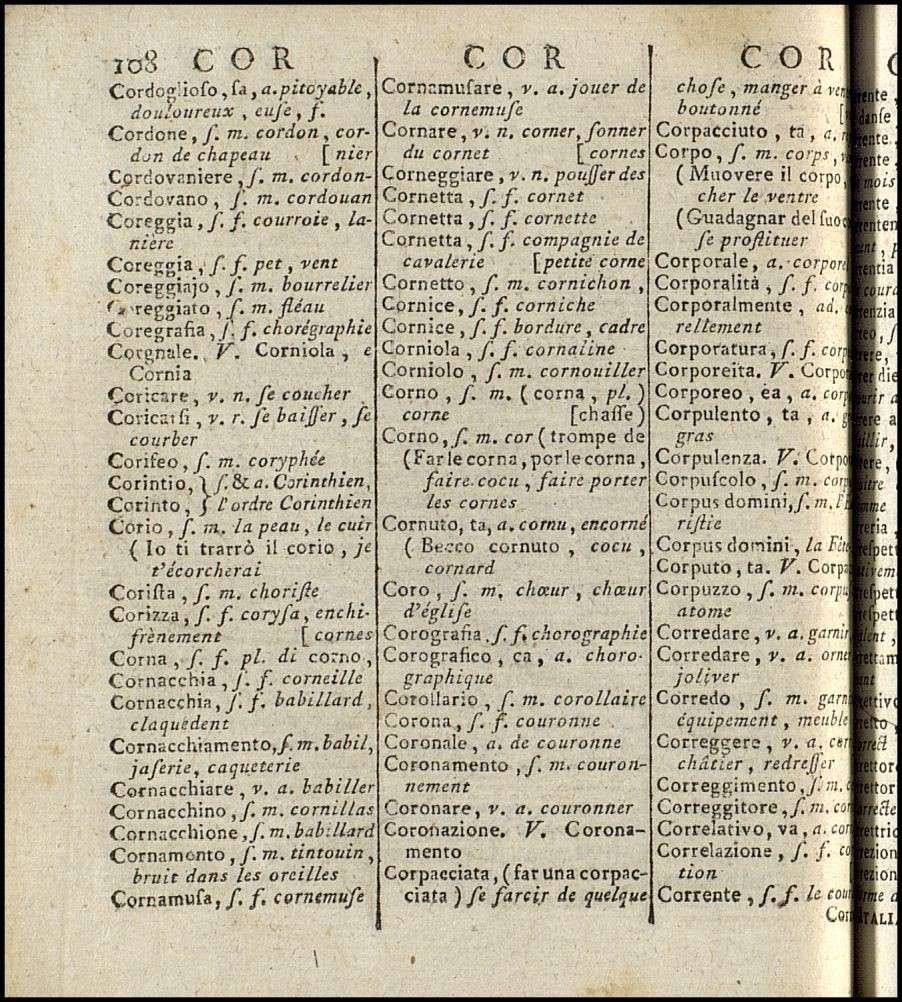 108 COR
Cordoglioso, sa, a. pitoyable,
douloureux, euse, f.
Cordone, ſ. m. cordon, cor-
don de chapeau [nier
Cordovaniere, ſ. m. cordon-
Cordovano, ſ. m. cordouan
Coreggia, ſ. f. courroie, la-
nière
Coreggia, ſ. f. pet, vent
Coreggiajo, ſ. m. bourrelier
reggiato, ſ. m. fléau
Coregrafia, ſ. f. chorégraphie
Corgnale. V. Corniola, e
Cornia
Coricare, v. n. ſe coucher
Coricarſi, v. r. ſe baiſſer, ſe
courber
Corifeo, ſ. m. coryphée
Corintio, } ſ. & a. Corinthien,
Corinto, } l'ordre Corinthien
Corio, ſ. m. la peau, le cuir
(Io ti trarrò il corio, je
t'écorcherai
Coriſta, ſ. m. choriſte
Corizza, ſ. f. coryſa, enchi-
frènement [cornes
Corna, ſ. f. pl. di corno,
Cornacchia, ſ. f. corneille
Cornacchia, ſ. f. babillard,
claquedent
Cornacchiamento, ſ. m. babil,
jaſerie, caqueterie
Cornacchiare, v. a. babiller
Cornacchino, ſ. m. cornillas
Cornacchione, ſ. m. babillard
Cornamento, ſ. m. tintouin,
bruit dans les oreilles
Cornamuſa, ſ. f. cornemuſe
COR
Cornamuſare, v. a. jouer de
la cornemuſe
Cornare, v. n. corner, ſonner
du cornet [cornes
Corneggiare, v. n. pouſſer des
Cornetta, ſ. f. cornet
Cornetta, ſ. f. cornette
Cornetta, ſ. f. compagnie de
cavalerie [petite corne
Cornetto, ſ. m. cornichon,
Cornice, ſ. f. corniche
Cornice, ſ. f. bordure, cadre
Corniola, ſ. f. cornaline
Corniolo, ſ. m. cornouiller
Corno, ſ. m. (corna, pl.)
corne [chaſſe)
Corno, ſ. m. cor (trompe de
(Far le corna, por le corna,
faire cocu, faire porter
les cornes
Cornuto, ta, a. cornu, encorné
(Becco cornuto, cocu,
cornard
Coro, ſ. m. chœur, chœur
d'égliſe
Corografia, ſ. f. chorographie
Corografico, ca, a. choro-
graphique
Corollario, ſ. m. corollaire
Corona, ſ. f. couronne
Coronale, a. de couronne
Coronamento, ſ. m. couron-
nement
Coronare, v. a. couronner
Coronazione. V. Corona-
mento
Corpacciata, (far una corpac-
ciata) ſe farcir de quelque
COR
choſe, manger à ven
boutonné [
Corpacciuto, ta, a.
Corpo, ſ. m. corps,
(Muovere il corpo,
cher le ventre
(Guadagnar del ſuo
ſe proſtituer
Corporale, a. corpore
Corporalità, ſ. f. corp
Corporalmente, ad.
rellement
Corporatura, ſ. f. corp
Corporeita. V. Corpo
Corporeo, ea, a. corp
Corpulento, ta, a. g
gras
Corpulenza. V. Corpo
Corpuſcolo, ſ. m. corp
Corpus domini, ſ. m. l'E
riſtie
Corpus domini, la Fête
Corputo, ta. V. Corpa
Corpuzzo, ſ. m. corpu
atome
Corredare, v. a. garnir
Corredare, v. a. orner
joliver
Corredo, ſ. m. garn
équipement, meuble
Correggere, v. a. corr
châtier, redreſſer
Correggimento, ſ. m. c
Correggitore, ſ. m. cor
Correlativo, va, a. cor
Correlazione, ſ. f. co
tion
Corrente, ſ. f. le cour
Corr